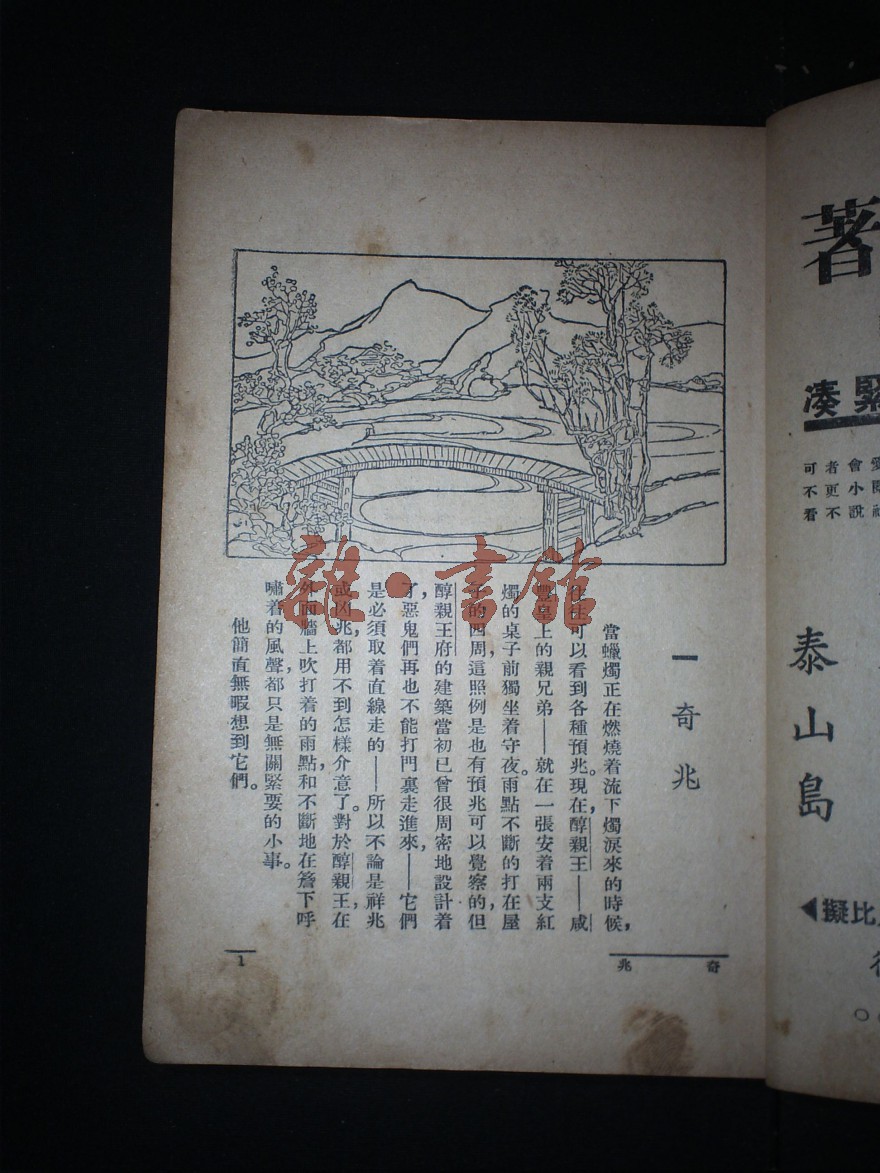 著
緊湊
會小說
者更不
可不看
泰山島
比擬◀
一 奇兆
當蠟燭正在燃燒着流下燭淚來的時候，
往往可以看到各種預兆。現在，醇親王——咸
豐皇上的親兄弟——就在一張安着兩支紅
燭的桌子前獨坐着守夜。雨點不斷的打在屋
子的四周，這照例是也有預兆可以覺察的，但
醇親王府的建築當初已曾很周密地設計着
了，惡鬼們再也不能打門裏走進來，——它們
是必須取着直線走的——所以不論是祥兆
或凶兆，都用不到怎樣介意了。對於醇親王，在
外面牆上吹打着的雨點，和不斷地在簷下呼
嘯着的風聲，都只是無關緊要的小事。
他簡直無暇想到它們。
奇兆
1
雜·書館